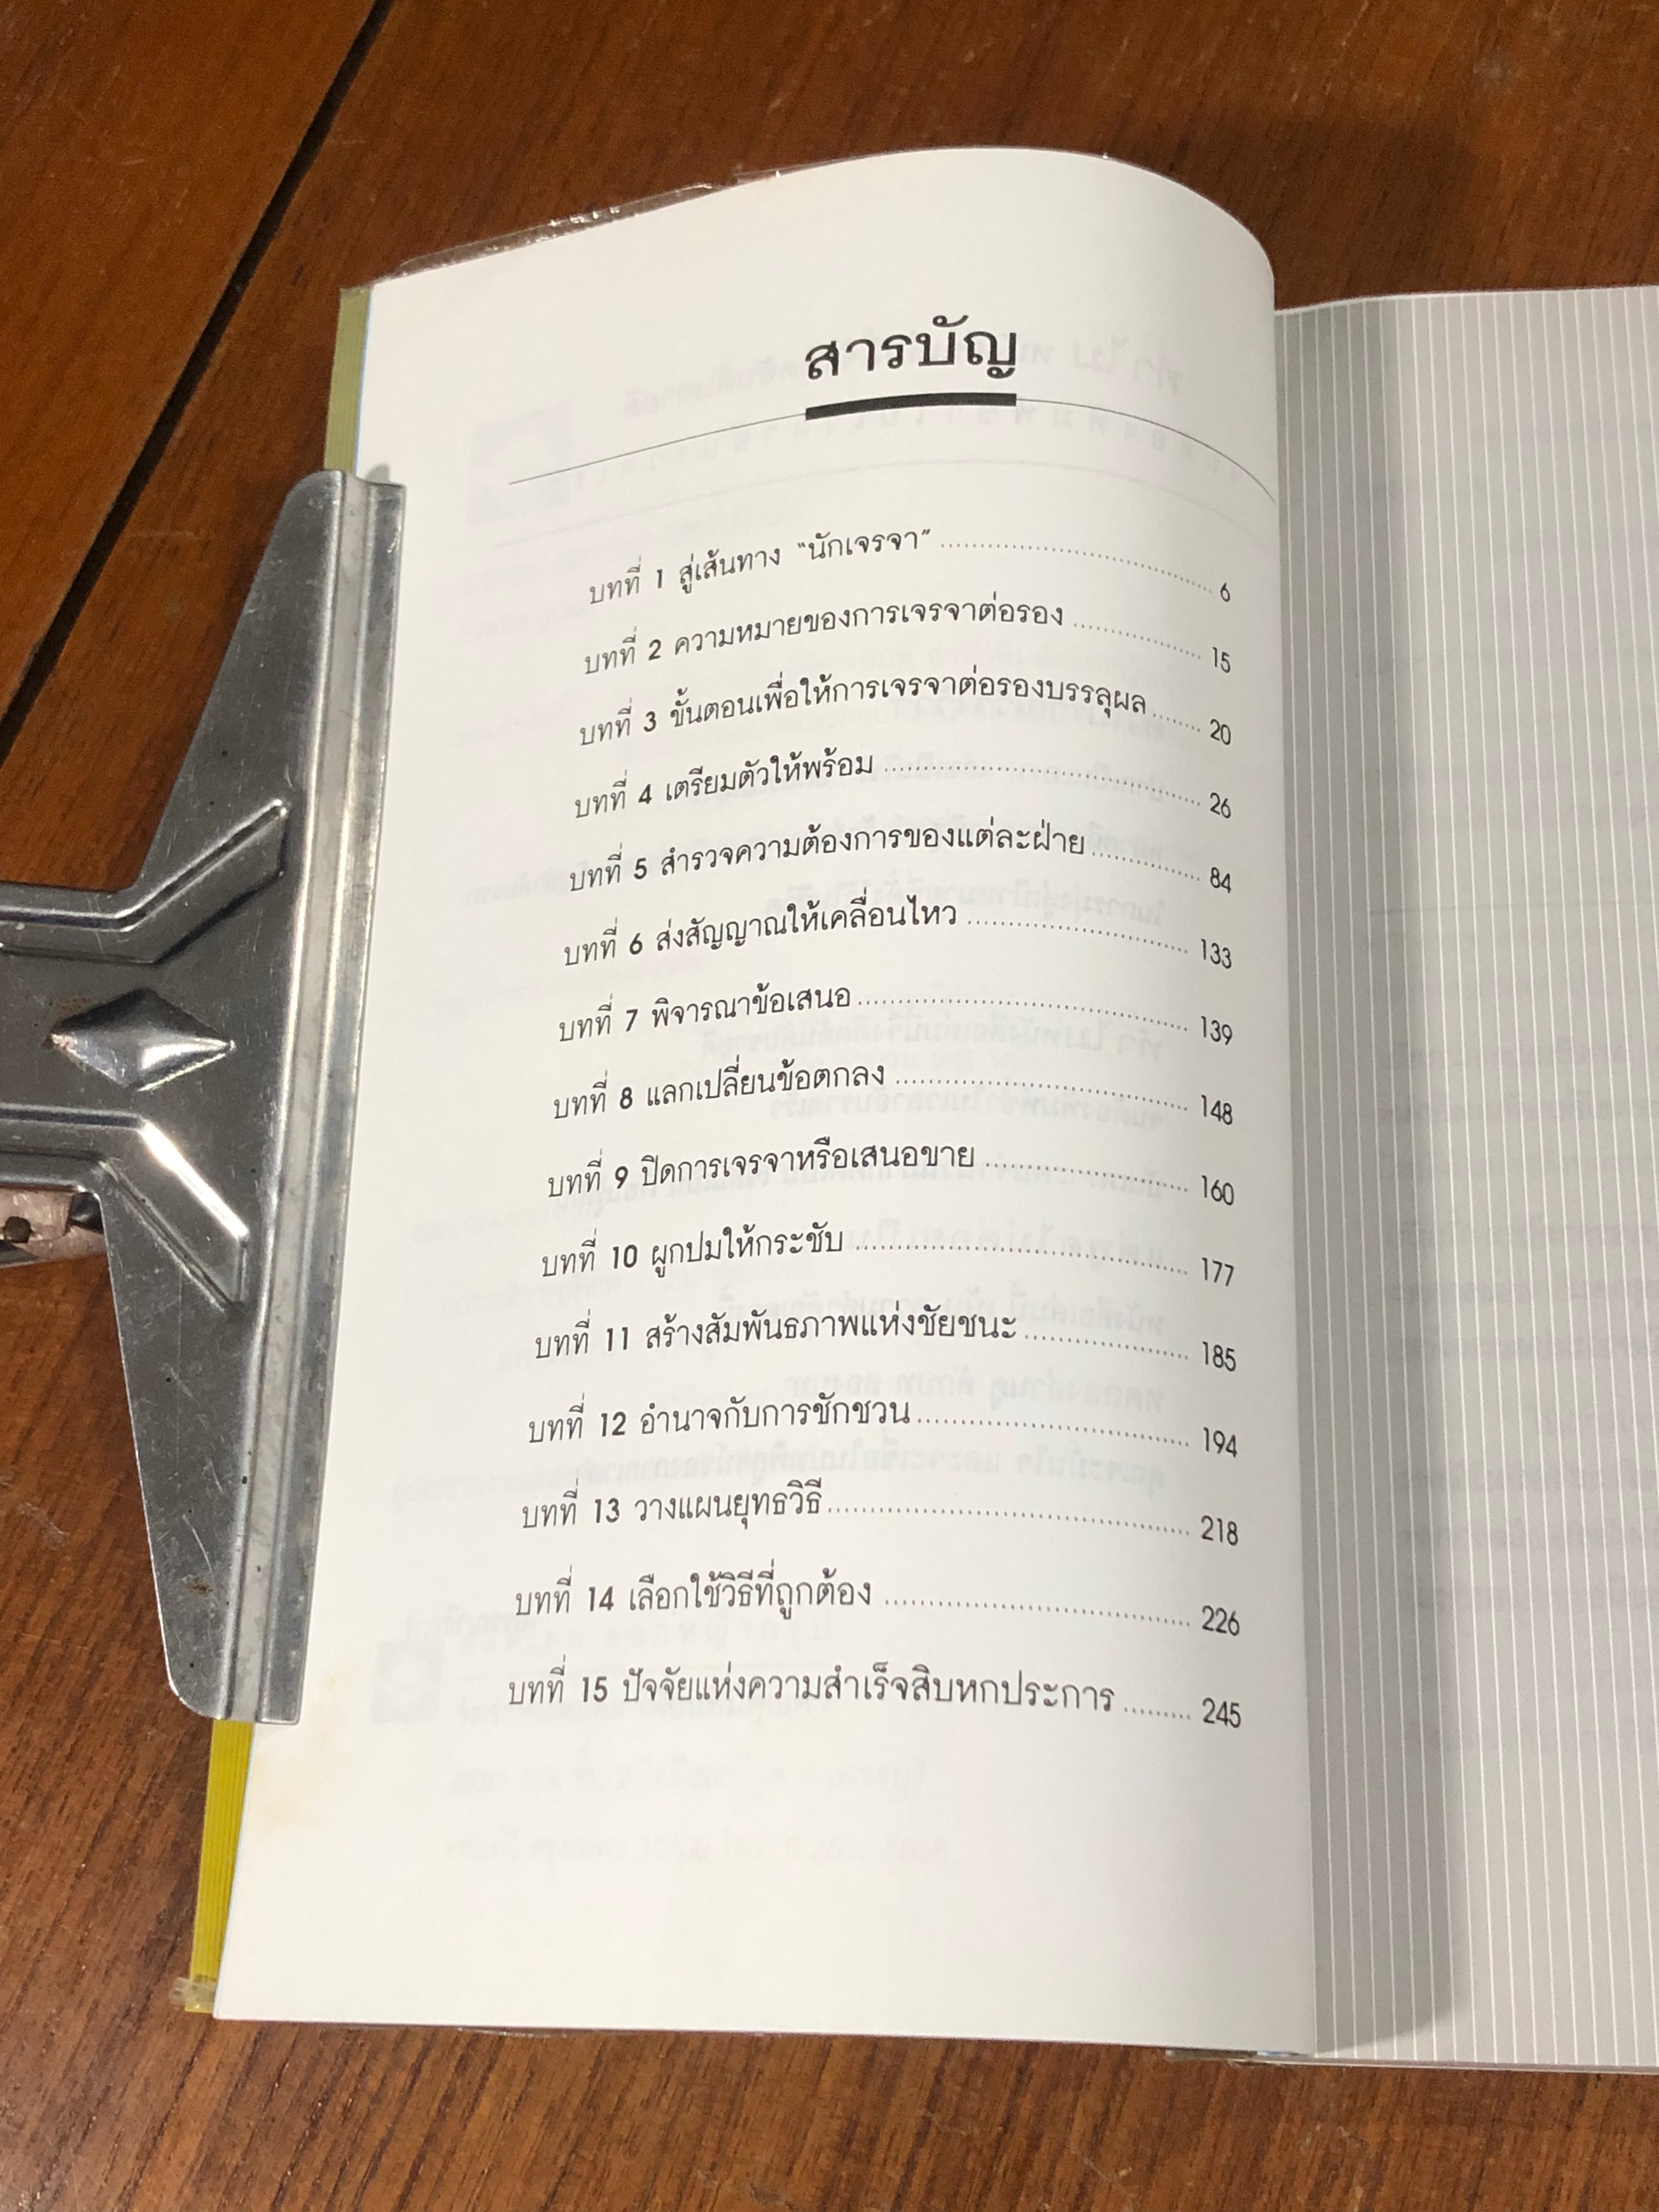 สารบัญ
บทที่ 1 สู่เส้นทาง "นักเจรจา" ........................................ 6
บทที่ 2 ความหมายของการเจรจาต่อรอง .................... 15
บทที่ 3 ขั้นตอนเพื่อให้การเจรจาต่อรองบรรลุผล ........ 20
บทที่ 4 เตรียมตัวให้พร้อม ................................................ 26
บทที่ 5 สำรวจความต้องการของแต่ละฝ่าย ................ 84
บทที่ 6 ส่งสัญญาณให้เคลื่อนไหว .................................. 133
บทที่ 7 พิจารณาข้อเสนอ .................................................. 139
บทที่ 8 แลกเปลี่ยนข้อตกลง ............................................ 148
บทที่ 9 ปิดการเจรจาหรือเสนอขาย .............................. 160
บทที่ 10 ผูกปมให้กระชับ .................................................. 177
บทที่ 11 สร้างสัมพันธภาพแห่งชัยชนะ ........................ 185
บทที่ 12 อำนาจกับการชักชวน ........................................ 194
บทที่ 13 วางแผนยุทธวิธี .................................................... 218
บทที่ 14 เลือกใช้วิธีที่ถูกต้อง ............................................ 226
บทที่ 15 ปัจจัยแห่งความสำเร็จสิบหกประการ .......... 245